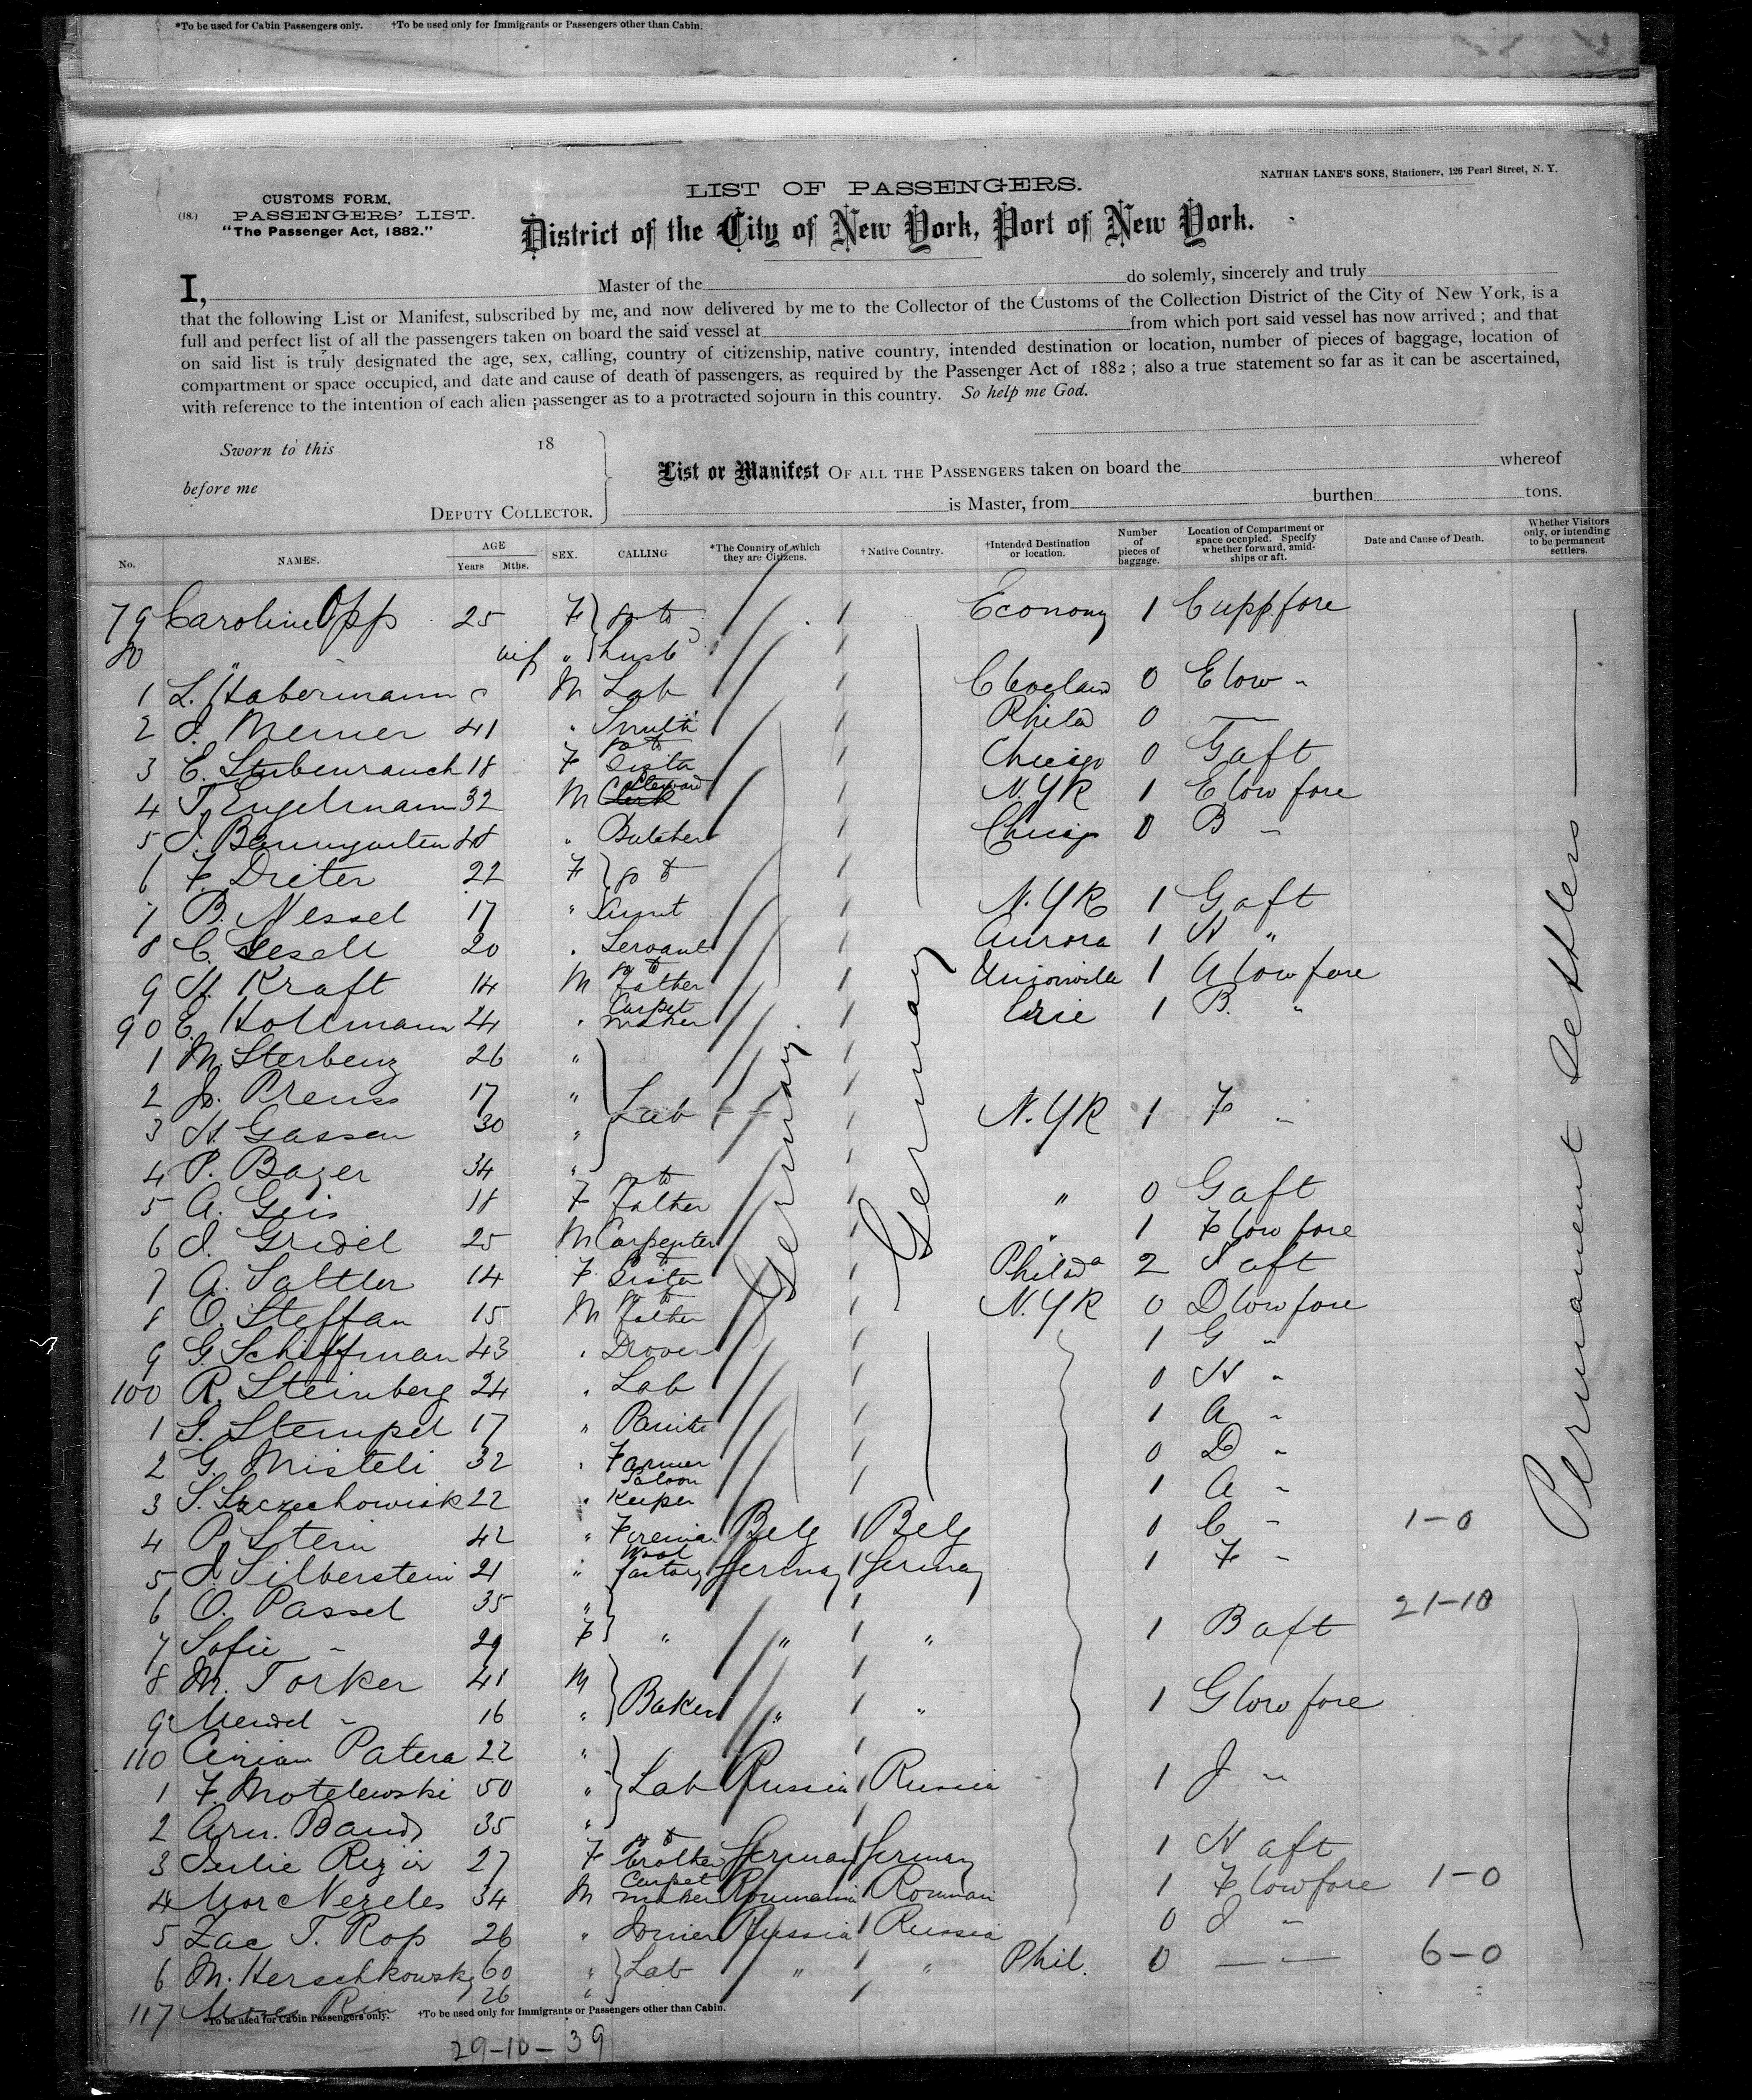 *To be used for Cabin Passengers only. †To be used only for Immigrants or Passengers other than Cabin.
NATHAN LANE'S SONS, Stationers, 126 Pearl Street, N. Y.
LIST OF PASSENGERS.
CUSTOMS FORM,
(18.) PASSENGERS' LIST.
"The Passenger Act, 1882."
District of the City of New York, Port of New York.
I, Master of the do solemly, sincerely and truly
that the following List or Manifest, subscribed by me, and now delivered by me to the Collector of the Customs of the Collection District of the City of New York, is a
full and perfect list of all the passengers taken on board the said vessel at from which port said vessel has now arrived ; and that
on said list is truly designated the age, sex, calling, country of citizenship, native country, intended destination or location, number of pieces of baggage, location of
compartment or space occupied, and date and cause of death of passengers, as required by the Passenger Act of 1882 ; also a true statement so far as it can be ascertained,
with reference to the intention of each alien passenger as to a protracted sojourn in this country. So help me God.
Sworn to this 18
before me
DEPUTY COLLECTOR.
List or Manifest OF ALL THE PASSENGERS taken on board the whereof
is Master, from burthen tons.
No. NAMES. AGE Years Mths. SEX. CALLING *The Country of which they are Citizens. † Native Country. †Intended Destination or location. Number of pieces of baggage. Location of Compartment or space occupied. Specify whether forward, amid-ships or aft. Date and Cause of Death. Whether Visitors only, or intending to be permanent settlers.
79 Caroline Opp 25 F Economy 1 C upp fore
80 " " husbd
1 L. Habermann M Lab Cleveland 0 E low "
2 J. Merner 41 " Smith Phila 0 —
3 E. Stubenrauch 18 F sister Chicago 0 G aft
4 T. Engelmann 32 M Clerk Steward N.YR 1 E low fore
5 J. Baumgarten 48 " Butcher Chicago 0 B "
6 F. Dreter 22 F
7 B. Nessel 17 " Aunt N.YR 1 G aft
8 C. Gesell 20 " Servant Aurora 1 H "
9 H. Kraft 14 M father Unionville 1 A low fore
90 C. Hollmann 41 " Carpet maker Erie 1 B. "
1 M. Sterbenz 26 "
2 Jo. Preuss 17 " Lab N.YR 1 F "
3 H. Gassen 30 "
4 P. Bazer 34 "
5 A. Geis 18 F father " 0 G aft
6 J. Gridel 25 M Carpenter " 1 F low fore
7 A. Sattler 14 F sister Philada 2 aft
8 O. Steffan 15 M father N.YR 0 D low fore
9 G. Schiffman 43 " Drover 1 G "
100 R. Steinberg 24 " Lab 0 H "
1 S. Stempel 17 " 1 A "
2 G. Misteli 32 " Farmer 0 D "
3 S. Szczechowisk 22 " Saloon Keeper 1 A "
4 P. Stein 42 " Foreman Belg Belg 0 C " 1-0
5 J. Silberstein 21 " Wool factory Germany Germany 1 F "
6 O. Passel 35 " 21-10
7 Sofie " 29 F " " " 1 B aft
8 M. Torker 41 M
9 Mendel " 16 " Baker " " 1 G low fore
110 Patera 22 "
1 F. Motelewski 50 " Lab Russia Russia 1 J "
2 Arn. Band 35 "
3 Julie 27 F brother German Germany 1 H aft
4 Nezeles 34 M Carpet maker Roumania Rouman 1 F low fore 1-0
5 Zac T. Rop 26 " Joiner Russia Russia 0 J "
6 M. Herschkowsky 60 " Lab " " Phil. 0 — " — 6-0
117 Moses 26 "
Germany
Germany
Permanent Settlers
*To be used for Cabin Passengers only. †To be used only for Immigrants or Passengers other than Cabin.
29-10-39